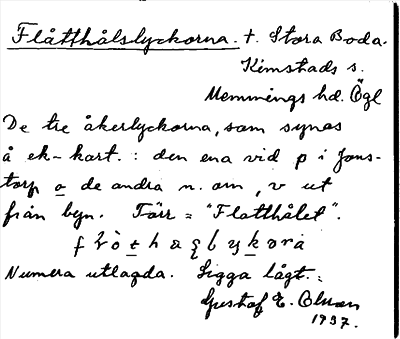 Flåtthålslyckorna. t. Stora Boda.
Kimstads s.
Memmings hd. Ögl
De tre åkerlyckorna, som synas
å ek-kart. : den ena vid p i Jons-
torp o de andra n. om, v ut
från byn. Färr = "Flatthålet".
Numera utlagda. Ligga lågt.
Gustaf E. Olsson
1937.